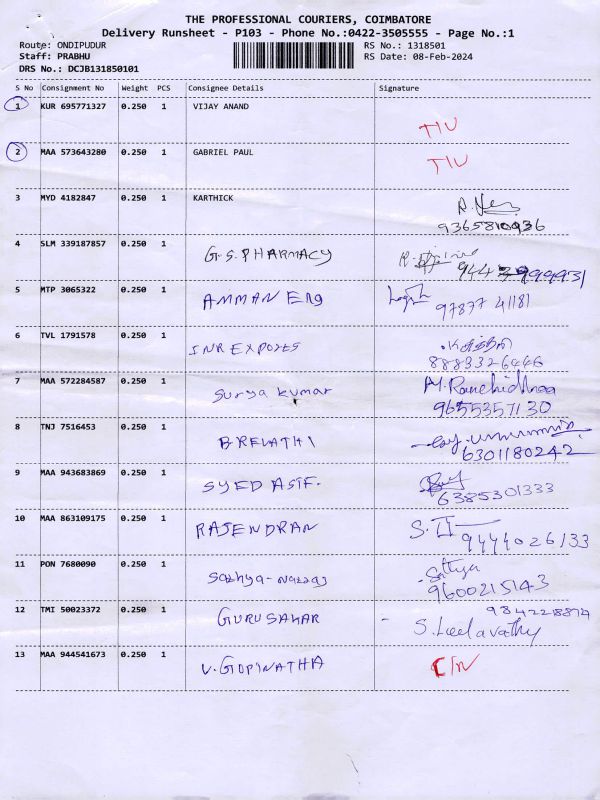 THE PROFESSIONAL COURIERS, COIMBATORE
Delivery Runsheet - P103 - Phone No.:0422-3505555 - Page No.:1
Route: ONDIPUDUR RS No.: 1318501
Staff: PRABHU RS Date: 08-Feb-2024
DRS No.: DCJB131850101
S No Consignment No Weight PCS Consignee Details Signature
1 KUR 695771327 0.250 1 VIJAY ANAND
TIU
2 MAA 573643280 0.250 1 GABRIEL PAUL
TIU
3 MYD 4182847 0.250 1 KARTHICK
9365810936
4 SLM 339187857 0.250 1 G.S.PHARMACY
5 MTP 3065322 0.250 1 AMMAN Eng
97877 41181
6 TVL 1791578 0.250 1 INR EXPORTS
8883326446
7 MAA 572284587 0.250 1 Surya Kumar
9655357130
8 TNJ 7516453 0.250 1 BRELATHI
6301180242
9 MAA 943683869 0.250 1 SYED ASIF.
6385301333
10 MAA 863109175 0.250 1 RAJENDRAN
9444026133
11 PON 7680090 0.250 1 Sathya
9600215143
12 TMI 50023372 0.250 1 GURUSAKAR
S. Leelavathy
13 MAA 944541673 0.250 1 V.GOPINATHA
C/N